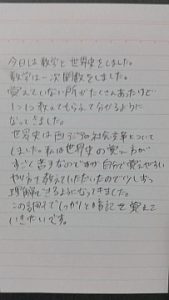 今日は数学と世界史をしました。
数学は一次関数をしました。
覚えていない所がたくさんあったけど
1つ1つ教えてもらえて分かるように
なってきました。
世界史は西ヨーロッパ社会について
しました。私は世界史の覚え方が
すごく苦手なのですが自分で覚えやすい
やり方を教えていただいたので少しずつ
理解できるようになってきました。
この調子でしっかりと暗記を覚えて
いきたいです。